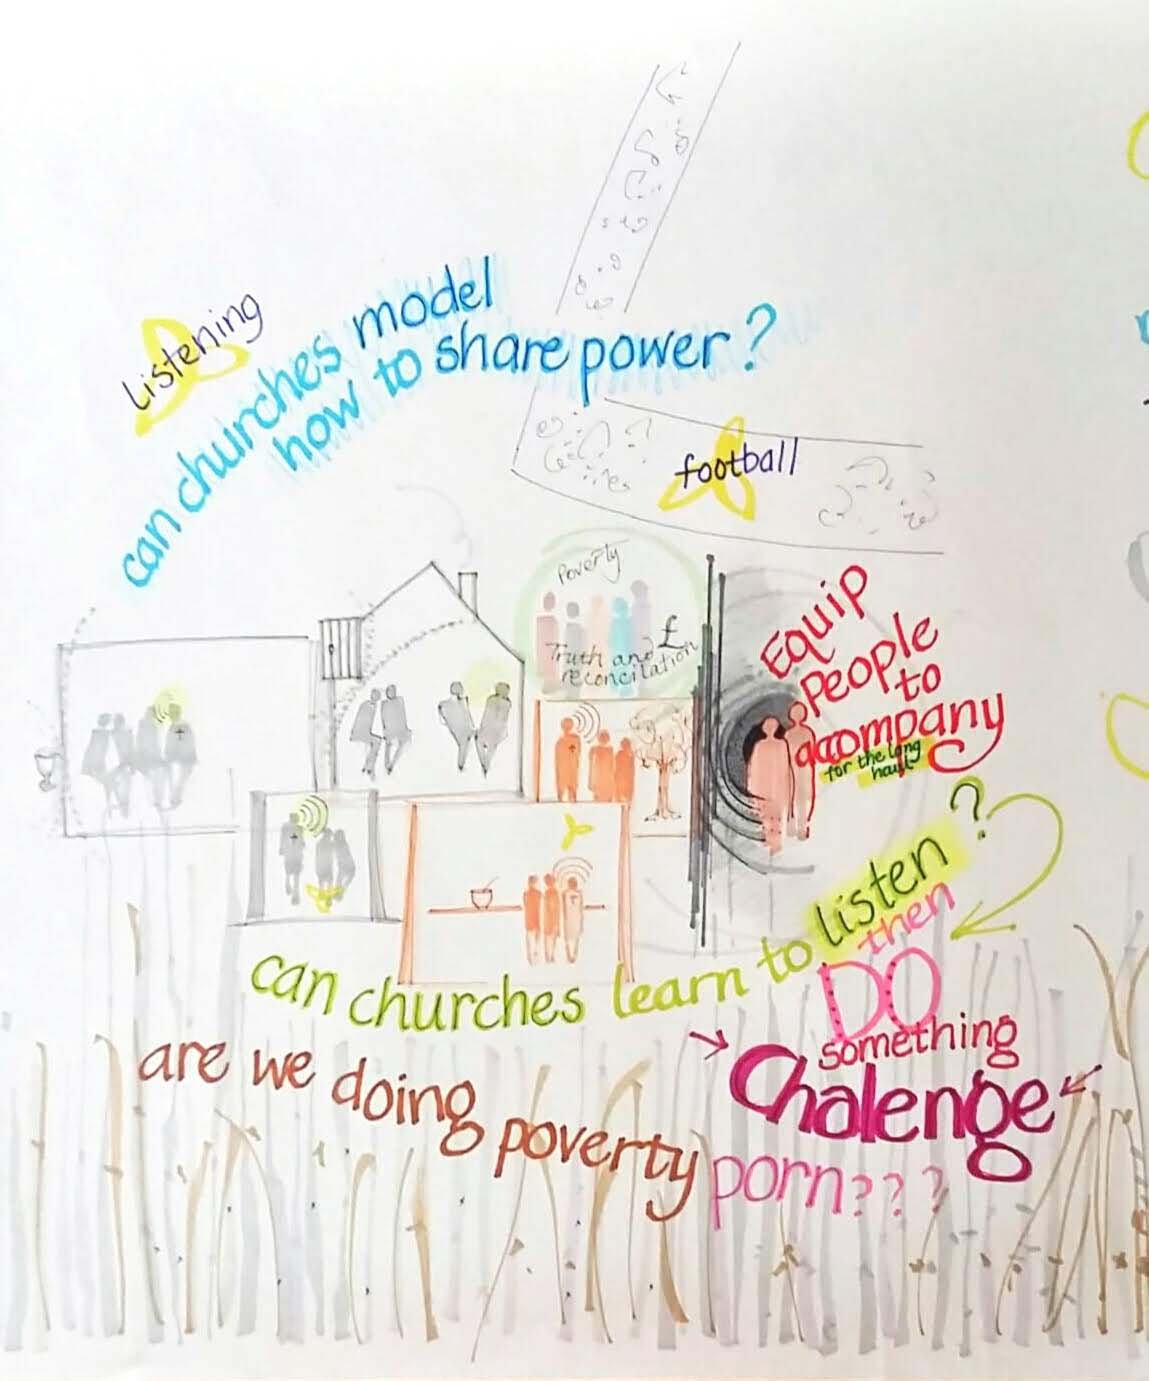 Listening
can churches model
how to share power?
football
Poverty
£
Truth and
reconcilation
Equip
People
to
accompany
for the long
haul
can churches learn to listen?
then
DO
something
Chalenge
are we doing poverty porn???